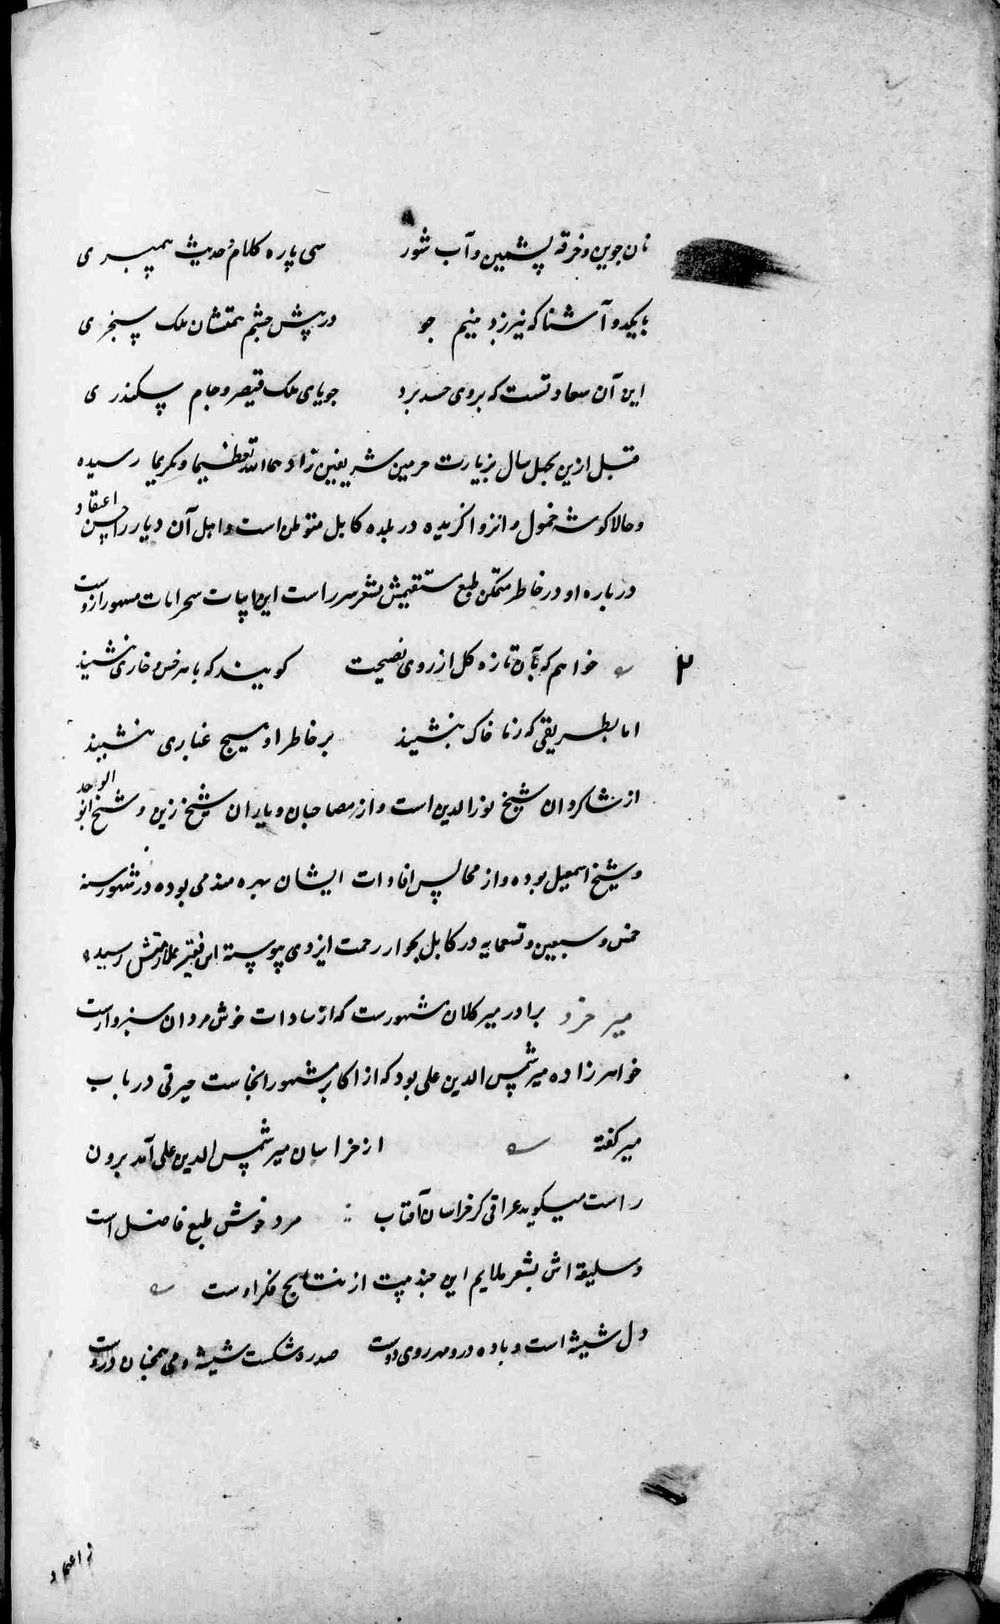 نان جوین و خرقه پشمین و آب شور سی پاره کلام و حدیث پیمبری
با یکدو آشنا که نیرزد بنیم جو در پیش چشم همتشان ملک سنجری
این آن سعادتست که بروی حسد برد جویای ملک قیصر و جام سکندری
قبل ازین بچهل سال بزیارت حرمین شریفین زادهما الله تعظیما و تکریما رسیده
و حالا کوشه خمول و انزوا کزیده در بلده کابل متوطن است و اهل آن دیار را حسن اعتقاد
درباره او در خاطر متمکن طبع مستقیمش بشعر راست این ابیات ازوست
خواهم که بآن تازه کل از روی نصیحت کویند که با هر خس و خاری ننشیند
۲
اما بطریقی که زما خاک نشیند بر خاطر او هیچ غباری ننشیند
از شاکردان شیخ نورالدین است و از مصاحبان و یاران شیخ زین و شیخ ابو الواحد
و شیخ اسمعیل بوده و از مجالس افادات ایشان بهره مند می بوده در شهور سنه
خمس و سبعین و تسعمایه در کابل بجوار رحمت ایزدی پیوسته این فقیر بملازمتش رسیده
میر خرد برادر میر کلان مشهورست که از سادات خوش مردان سبزوارست
خواهرزاده میر شمس الدین علی بود که از اکابر مشهور انجاست حیرتی در باب
میر کفته از خراسان میر شمس الدین علی آمد برون
راست میکوید عراقی کز خراسان آفتاب مرد خوش طبع فاضل است
و سلیقه اش بشعر ملایم این چند بیت از نتایج فکر اوست
دل شیشه است و باده درو مهر روی دوست صد ره شکست شیشه و می همچنان دروست